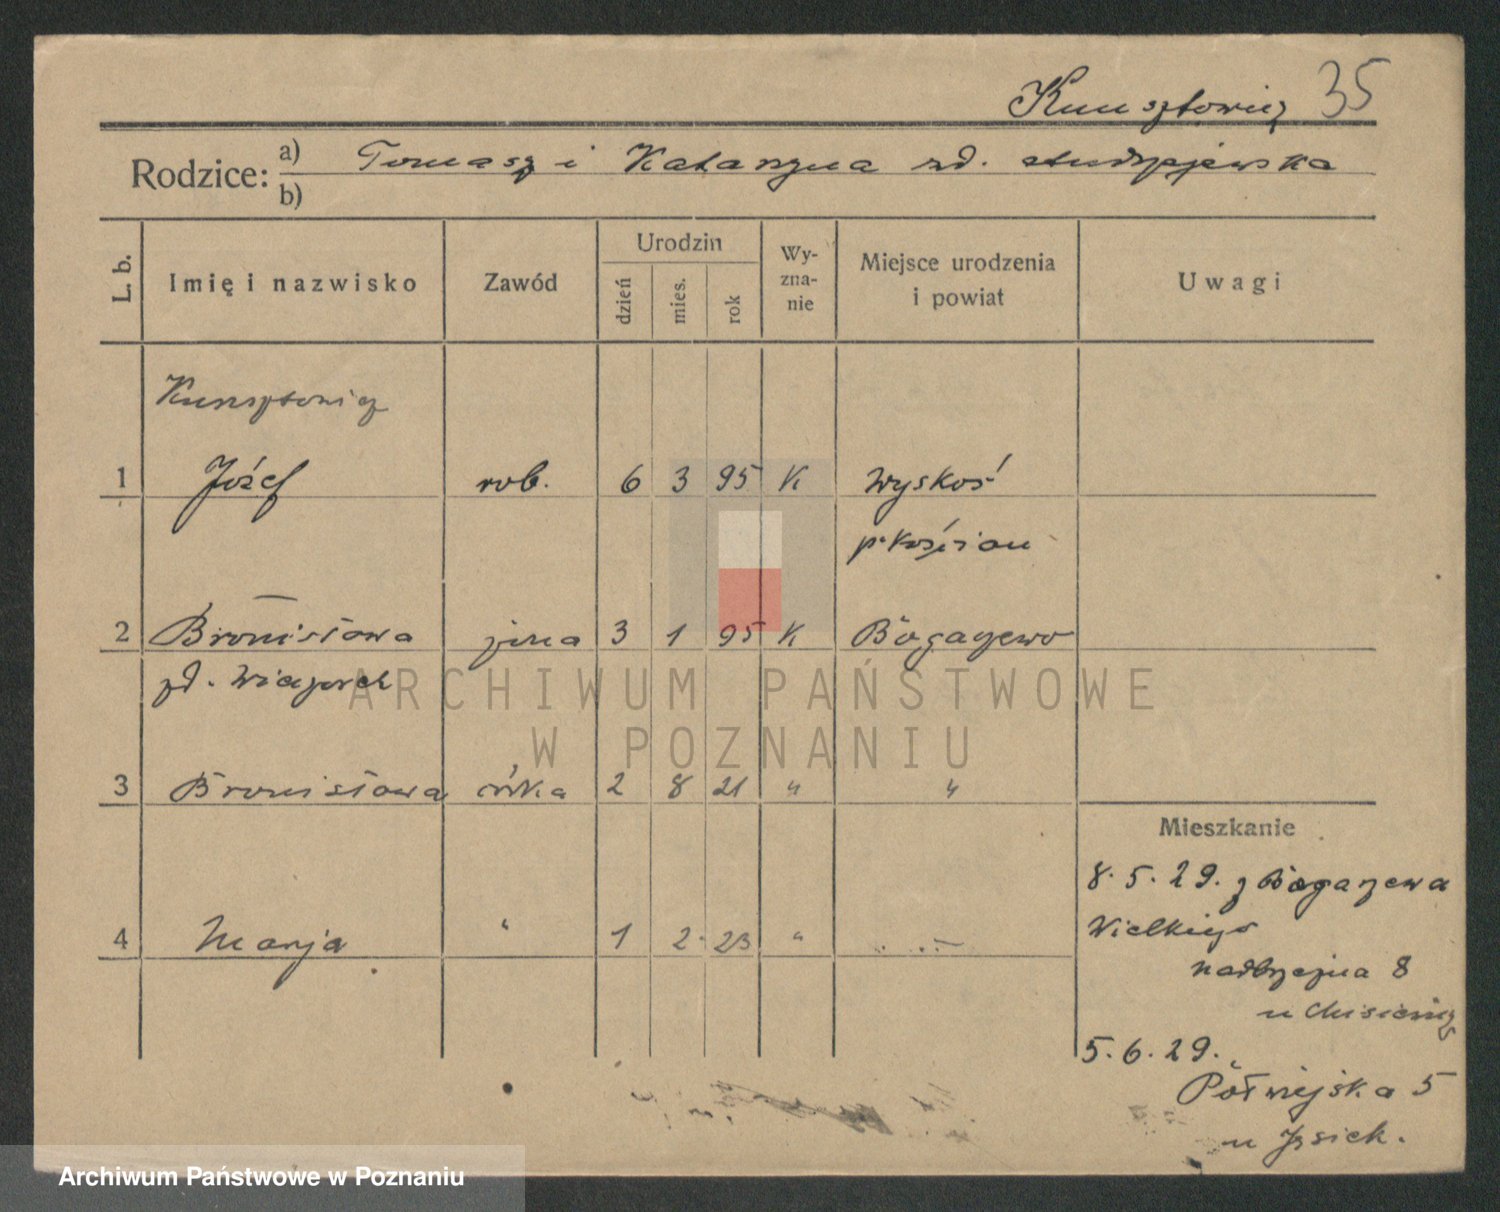 Kunsztowicz 35
Rodzice: a) Tomasz i Katarzyna zd. Andrzejewska
b)
L. b. Imię i nazwisko Zawód Urodzin dzień mies. rok Wyznanie Miejsce urodzenia i powiat Uwagi
Kunsztowicz
1 Józef rob. 6 3 95 K Wyskoś
p. Kościan
2 Bronisława żona 3 1 95 K
zd.
3 Bronisława córka 2 8 21 " "
4 Marja " 1 2 23 "
Mieszkanie
8. 5. 29. z
Wielkiego
Nadbrzeżna 8
u
5. 6. 29.
Półwiejska 5
u
ARCHIWUM PAŃSTWOWE
W POZNANIU
Archiwum Państwowe w Poznaniu